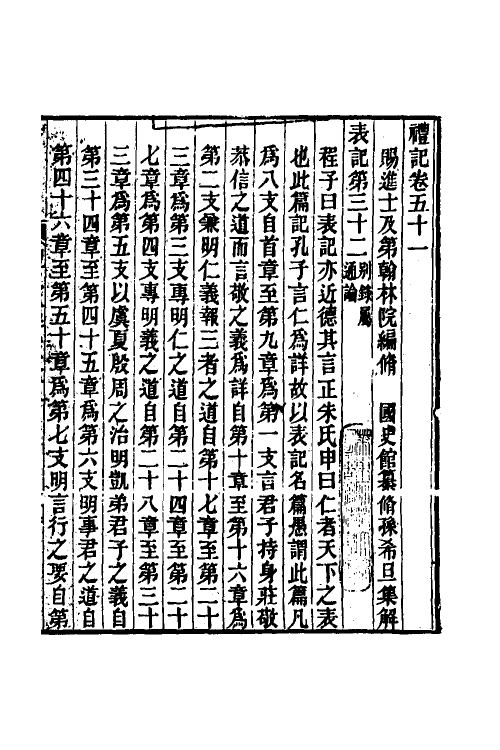 禮記卷五十一
賜進士及第翰林院編脩　國史館纂脩孫希旦集解
表記第三十二別錄屬通論
程子曰表記亦近德其言正朱氏申曰仁者天下之表
也此篇記孔子言仁爲詳故以表記名篇愚謂此篇凡
爲八支自首章至第九章爲第一支言君子持身莊敬
恭信之道而言敬之義爲詳自第十章至第十六章爲
第二支兼明仁義報三者之道自第十七章至第二十
三章爲第三支專明仁之道自第二十四章至第二十
七章爲第四支專明義之道自第二十八章至第三十
三章爲第五支以虞夏殷周之治明凱弟君子之義自
第三十四章至第四十五章爲第六支明事君之道自
第四十六章至第五十章爲第七支明言行之要自第